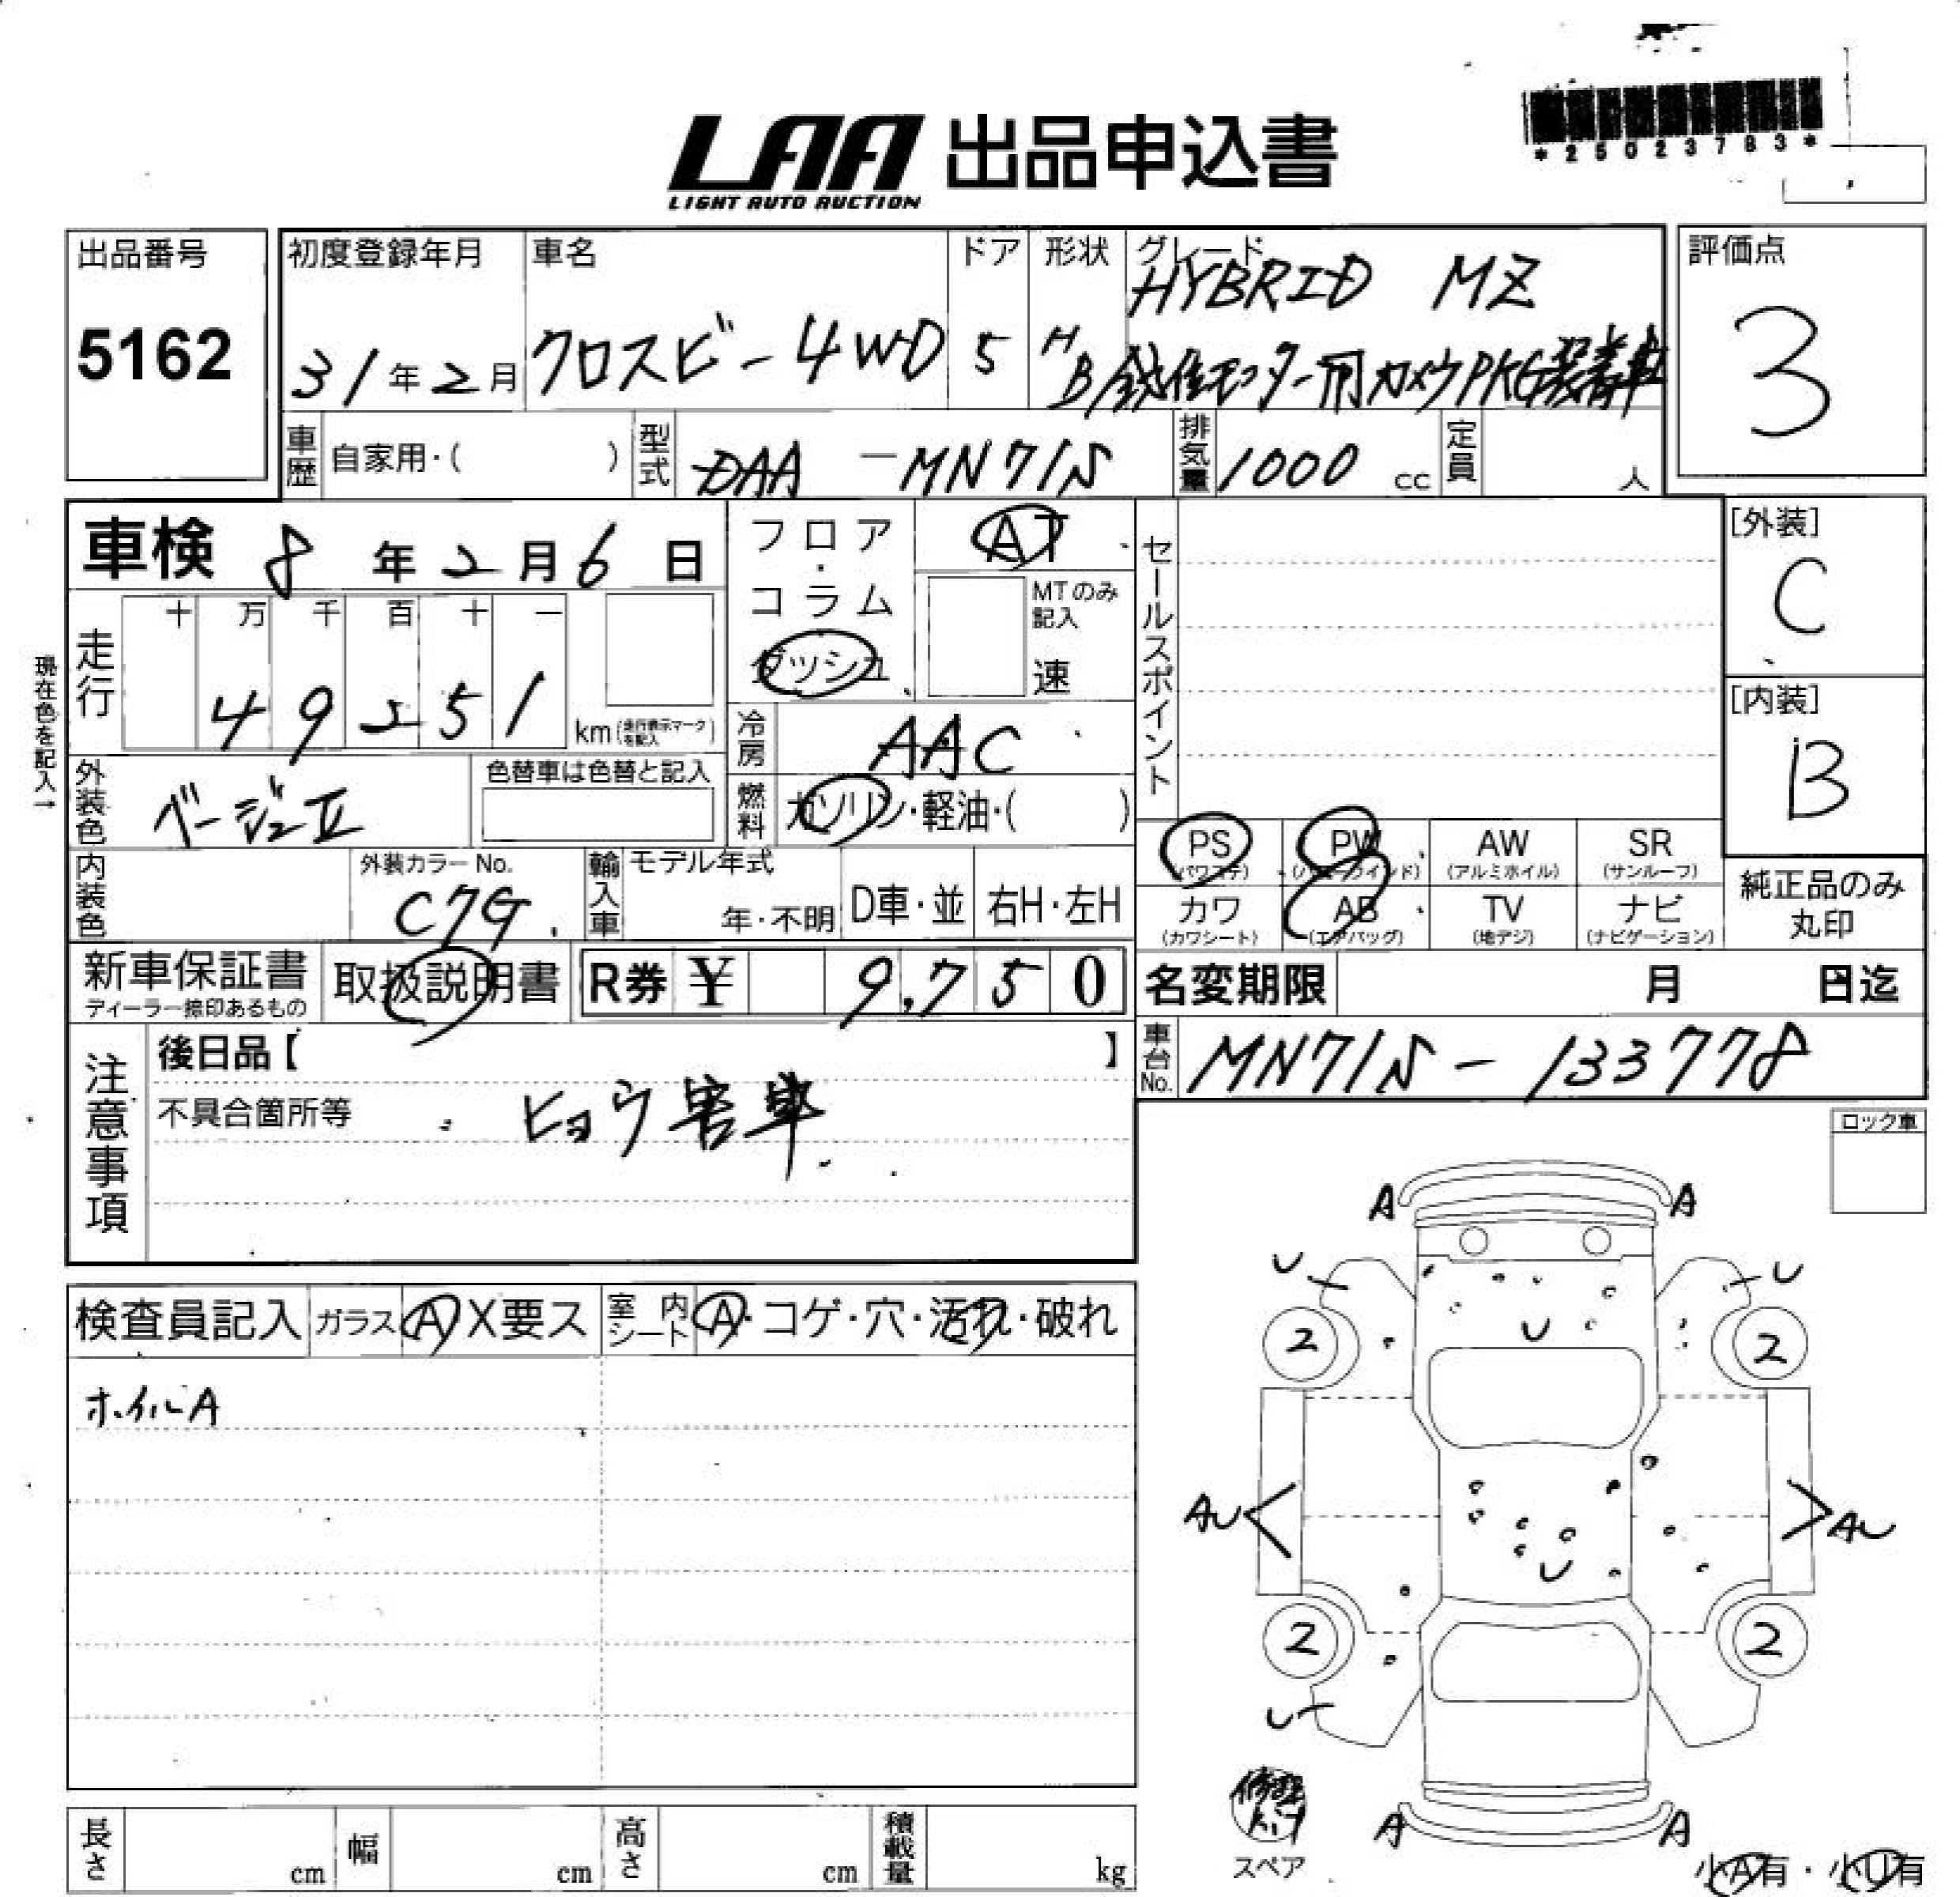 *25023783*
LAA 出品申込書
LIGHT AUTO AUCTION
出品番号
5162
初度登録年月
31年2月
車名
クロスビー4WD
ドア
5
形状
HB
グレード
HYBRID MZ
全方位モニター用カメラPKG装着車
評価点
3
車歴 自家用・( )
型式 DAA-MN71S
排気量 1000 cc
定員 人
車検 8年2月6日
フロア・コラム
ダッシュ
AT
MTのみ記入
速
セールスポイント
[外装]
C
[内装]
B
現在色を記入→
走行
十 万 千 百 十 一
4 9 2 5 1
km(走行表示マークを記入)
冷房 AAC
外装色 ベージュⅡ
色替車は色替と記入
燃料 ガソリン・軽油・( )
PS (パワステ)
PW (パワーウインド)
AW (アルミホイル)
SR (サンルーフ)
カワ (カワシート)
AB (エアバッグ)
TV (地デジ)
ナビ (ナビゲーション)
純正品のみ
丸印
内装色
外装カラーNo.
C7G
輸入車 モデル年式
年・不明
D車・並
右H・左H
新車保証書
ディーラー捺印あるもの
取扱説明書
R券 ¥ 9,750
名変期限 月 日迄
車台No. MN71S-133778
注意事項
後日品【 】
不具合箇所等
ヒョウ害車
ロック車
検査員記入
ガラス A X要ス
室内シート A・コゲ・穴・汚れ・破れ
ホイルA
A A
U U
2 2
U
AU AU
U
2 2
U
修理キット
スペア
A A
小A有・小U有
長さ cm
幅 cm
高さ cm
積載量 kg